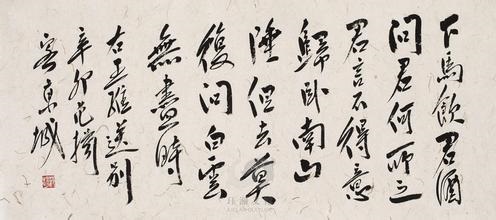 下馬飲君酒
問君何所之
君言不得意
歸臥南山
陲但去莫
復問白雲
無盡時
右王維送別
辛卯范
客京城